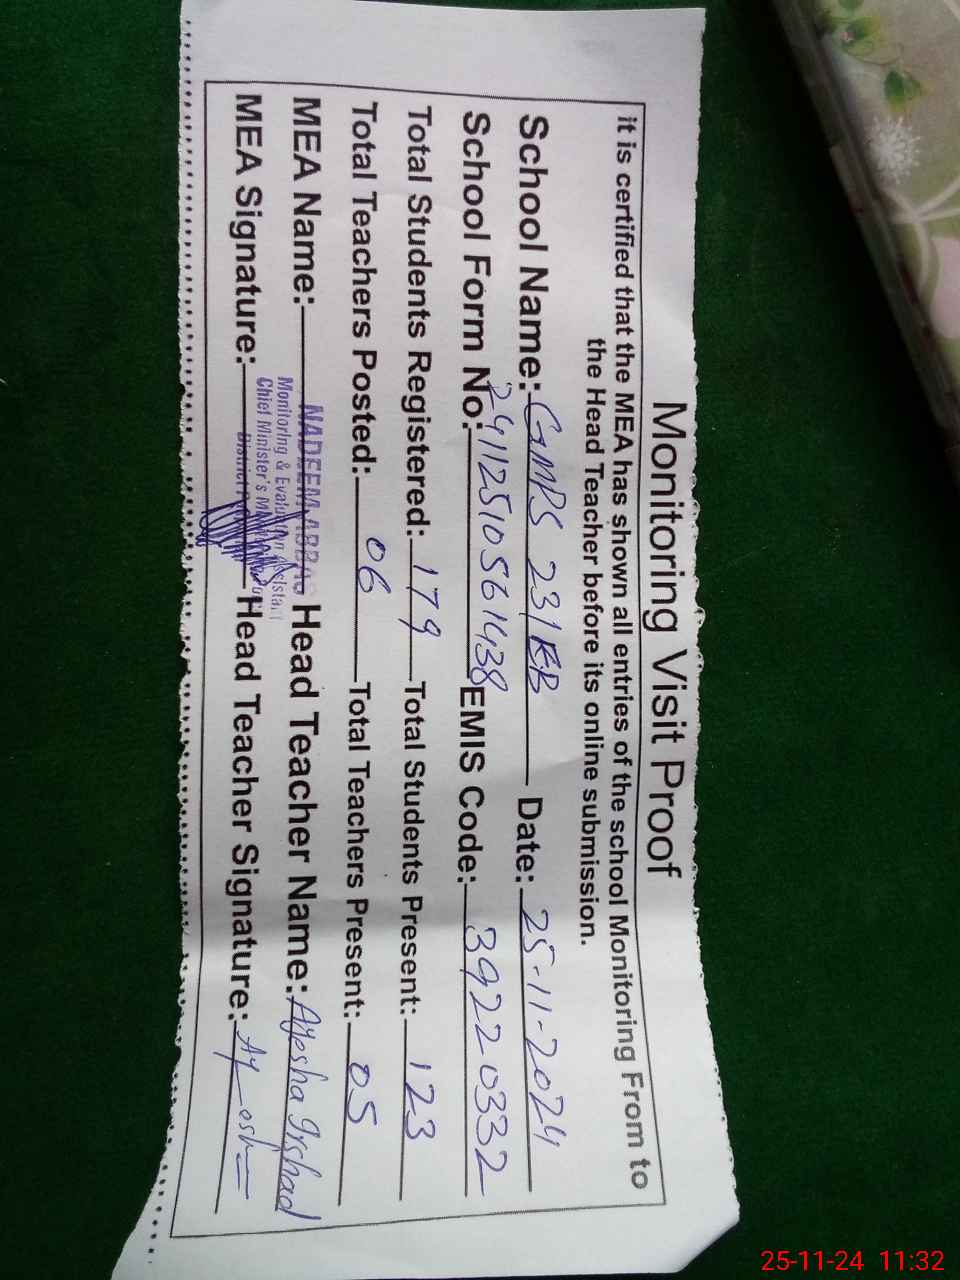 Monitoring Visit Proof
it is certified that the MEA has shown all entries of the school Monitoring From to
the Head Teacher before its online submission.
School Name: GMPS 231 EB Date: 25-11-2024
School Form No: 24112510561438 EMIS Code: 39220332
Total Students Registered: 179 Total Students Present: 123
Total Teachers Posted: 06 Total Teachers Present: 05
MEA Name: NADEEM ABBAS Head Teacher Name: Ayesha Irshad
Monitoring & Evaluation Assistant
Chief Minister's
District
MEA Signature: Head Teacher Signature: Ayesha
25-11-24 11:32